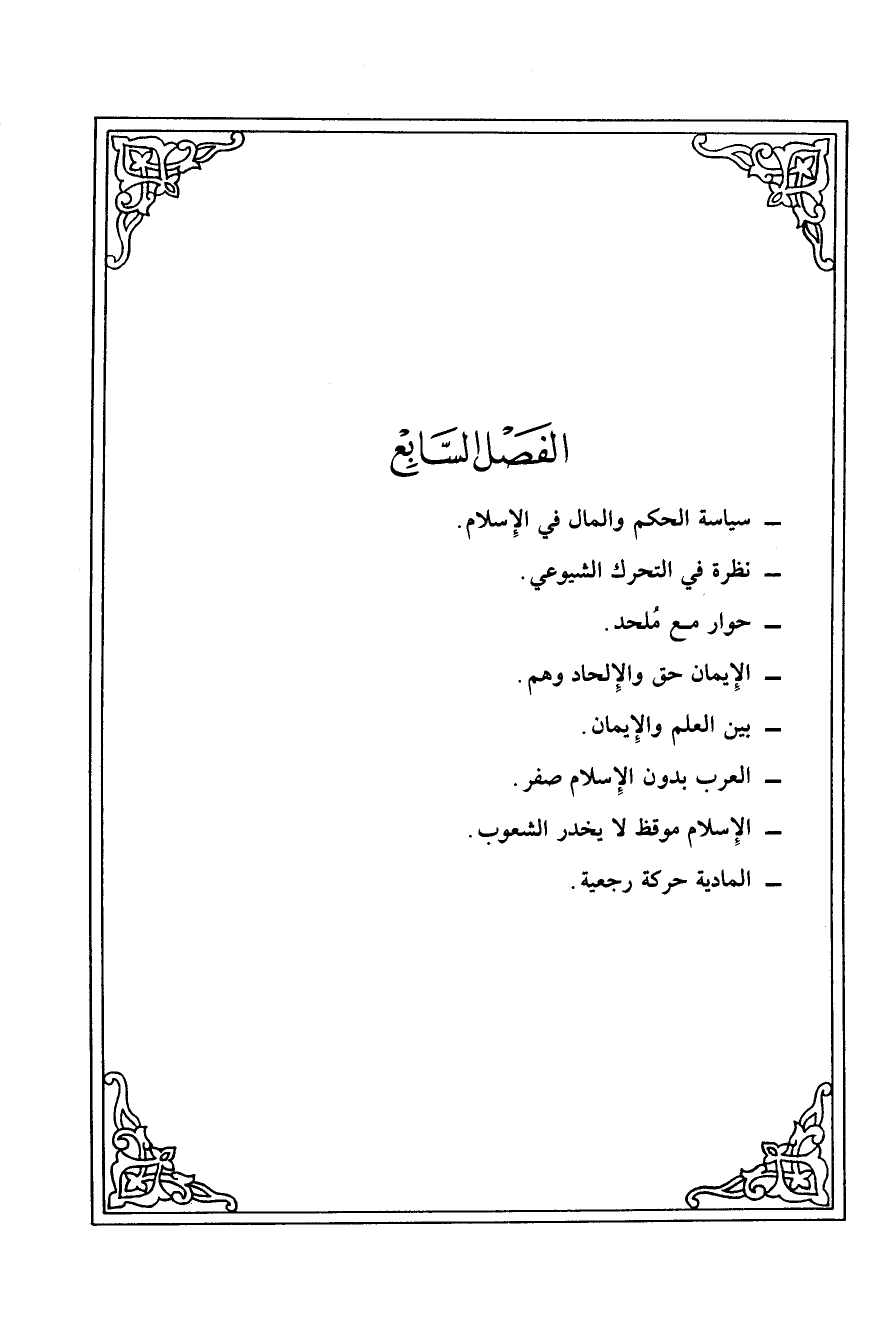 الفَصْل السَّابِعْ
ــ سياسة الحكم والمال في الإِسلام.
ــ نظرة في التحرك الشيوعي.
ــ حوار مع مُلحد.
ــ الإِيمان حق والإِلحاد وهم.
ــ بين العلم والإِيمان.
ــ العرب بدون الإِسلام صفر.
ــ الإِسلام موقظ لا يخدر الشعوب.
ــ المادية حركة رجعية.